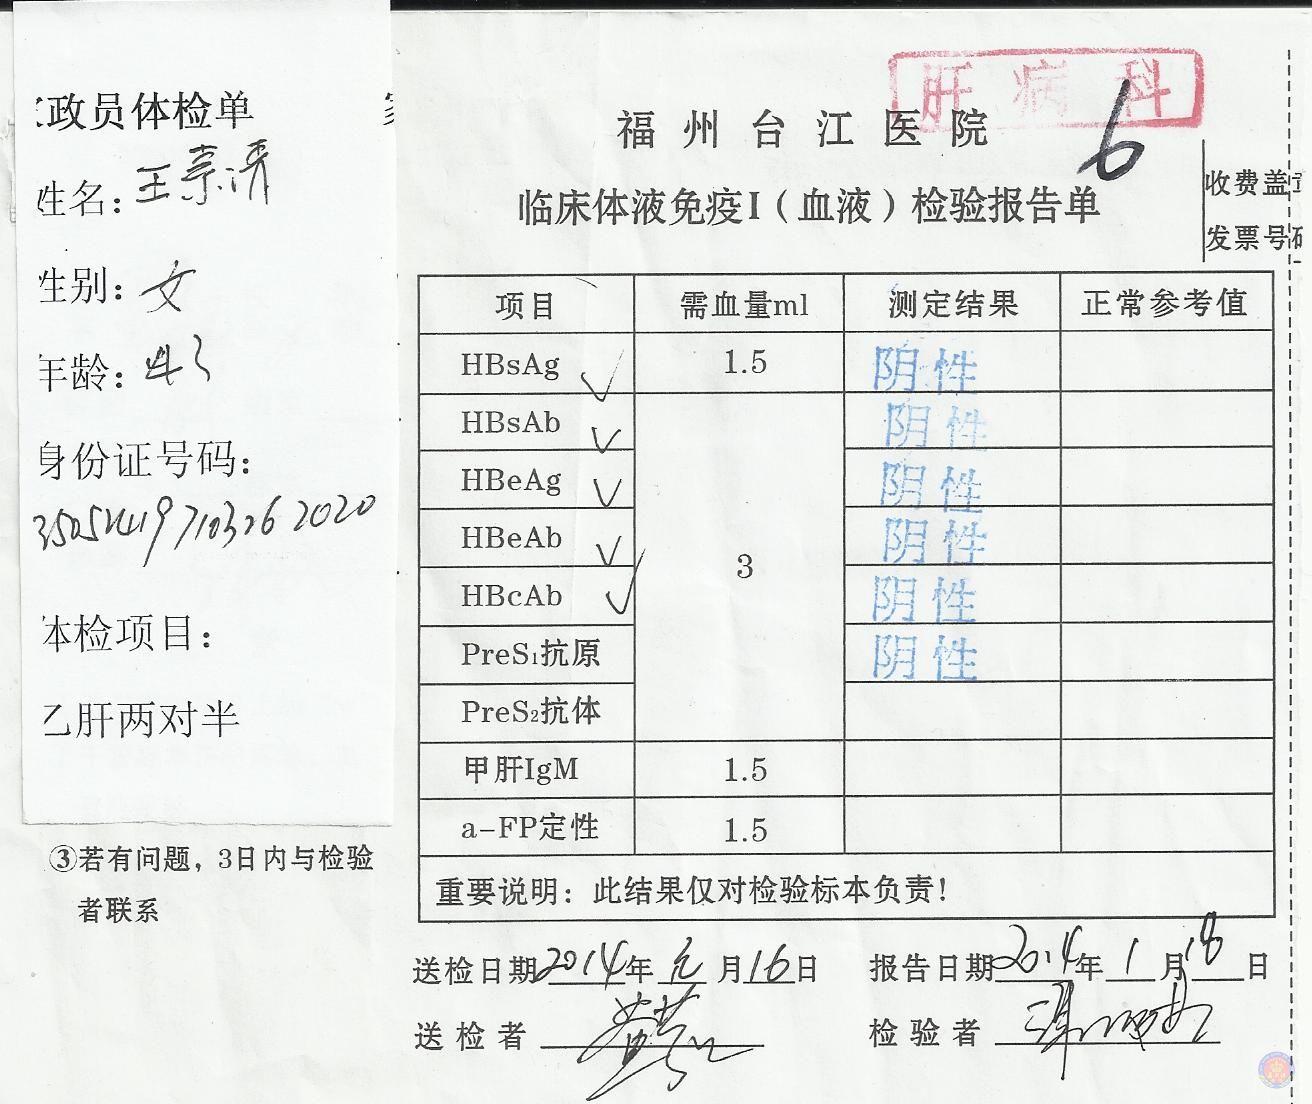 政员体检单
姓名：王
性别：女
年龄：43
身份证号码：
体检项目：
乙肝两对半
③若有问题，3日内与检验
者联系
肝病科
福州台江医院
6
临床体液免疫I（血液）检验报告单
收费盖
发票号
项目 需血量ml 测定结果 正常参考值
HBsAg ✓ 1.5 阴性
HBsAb ✓ 阴性
HBeAg ✓ 阴性
HBeAb ✓ 3 阴性
HBcAb ✓ 阴性
PreS₁抗原 阴性
PreS₂抗体
甲肝IgM 1.5
a-FP定性 1.5
重要说明：此结果仅对检验标本负责！
送检日期2014年元月16日 报告日期2014年1月18日
送检者 检验者